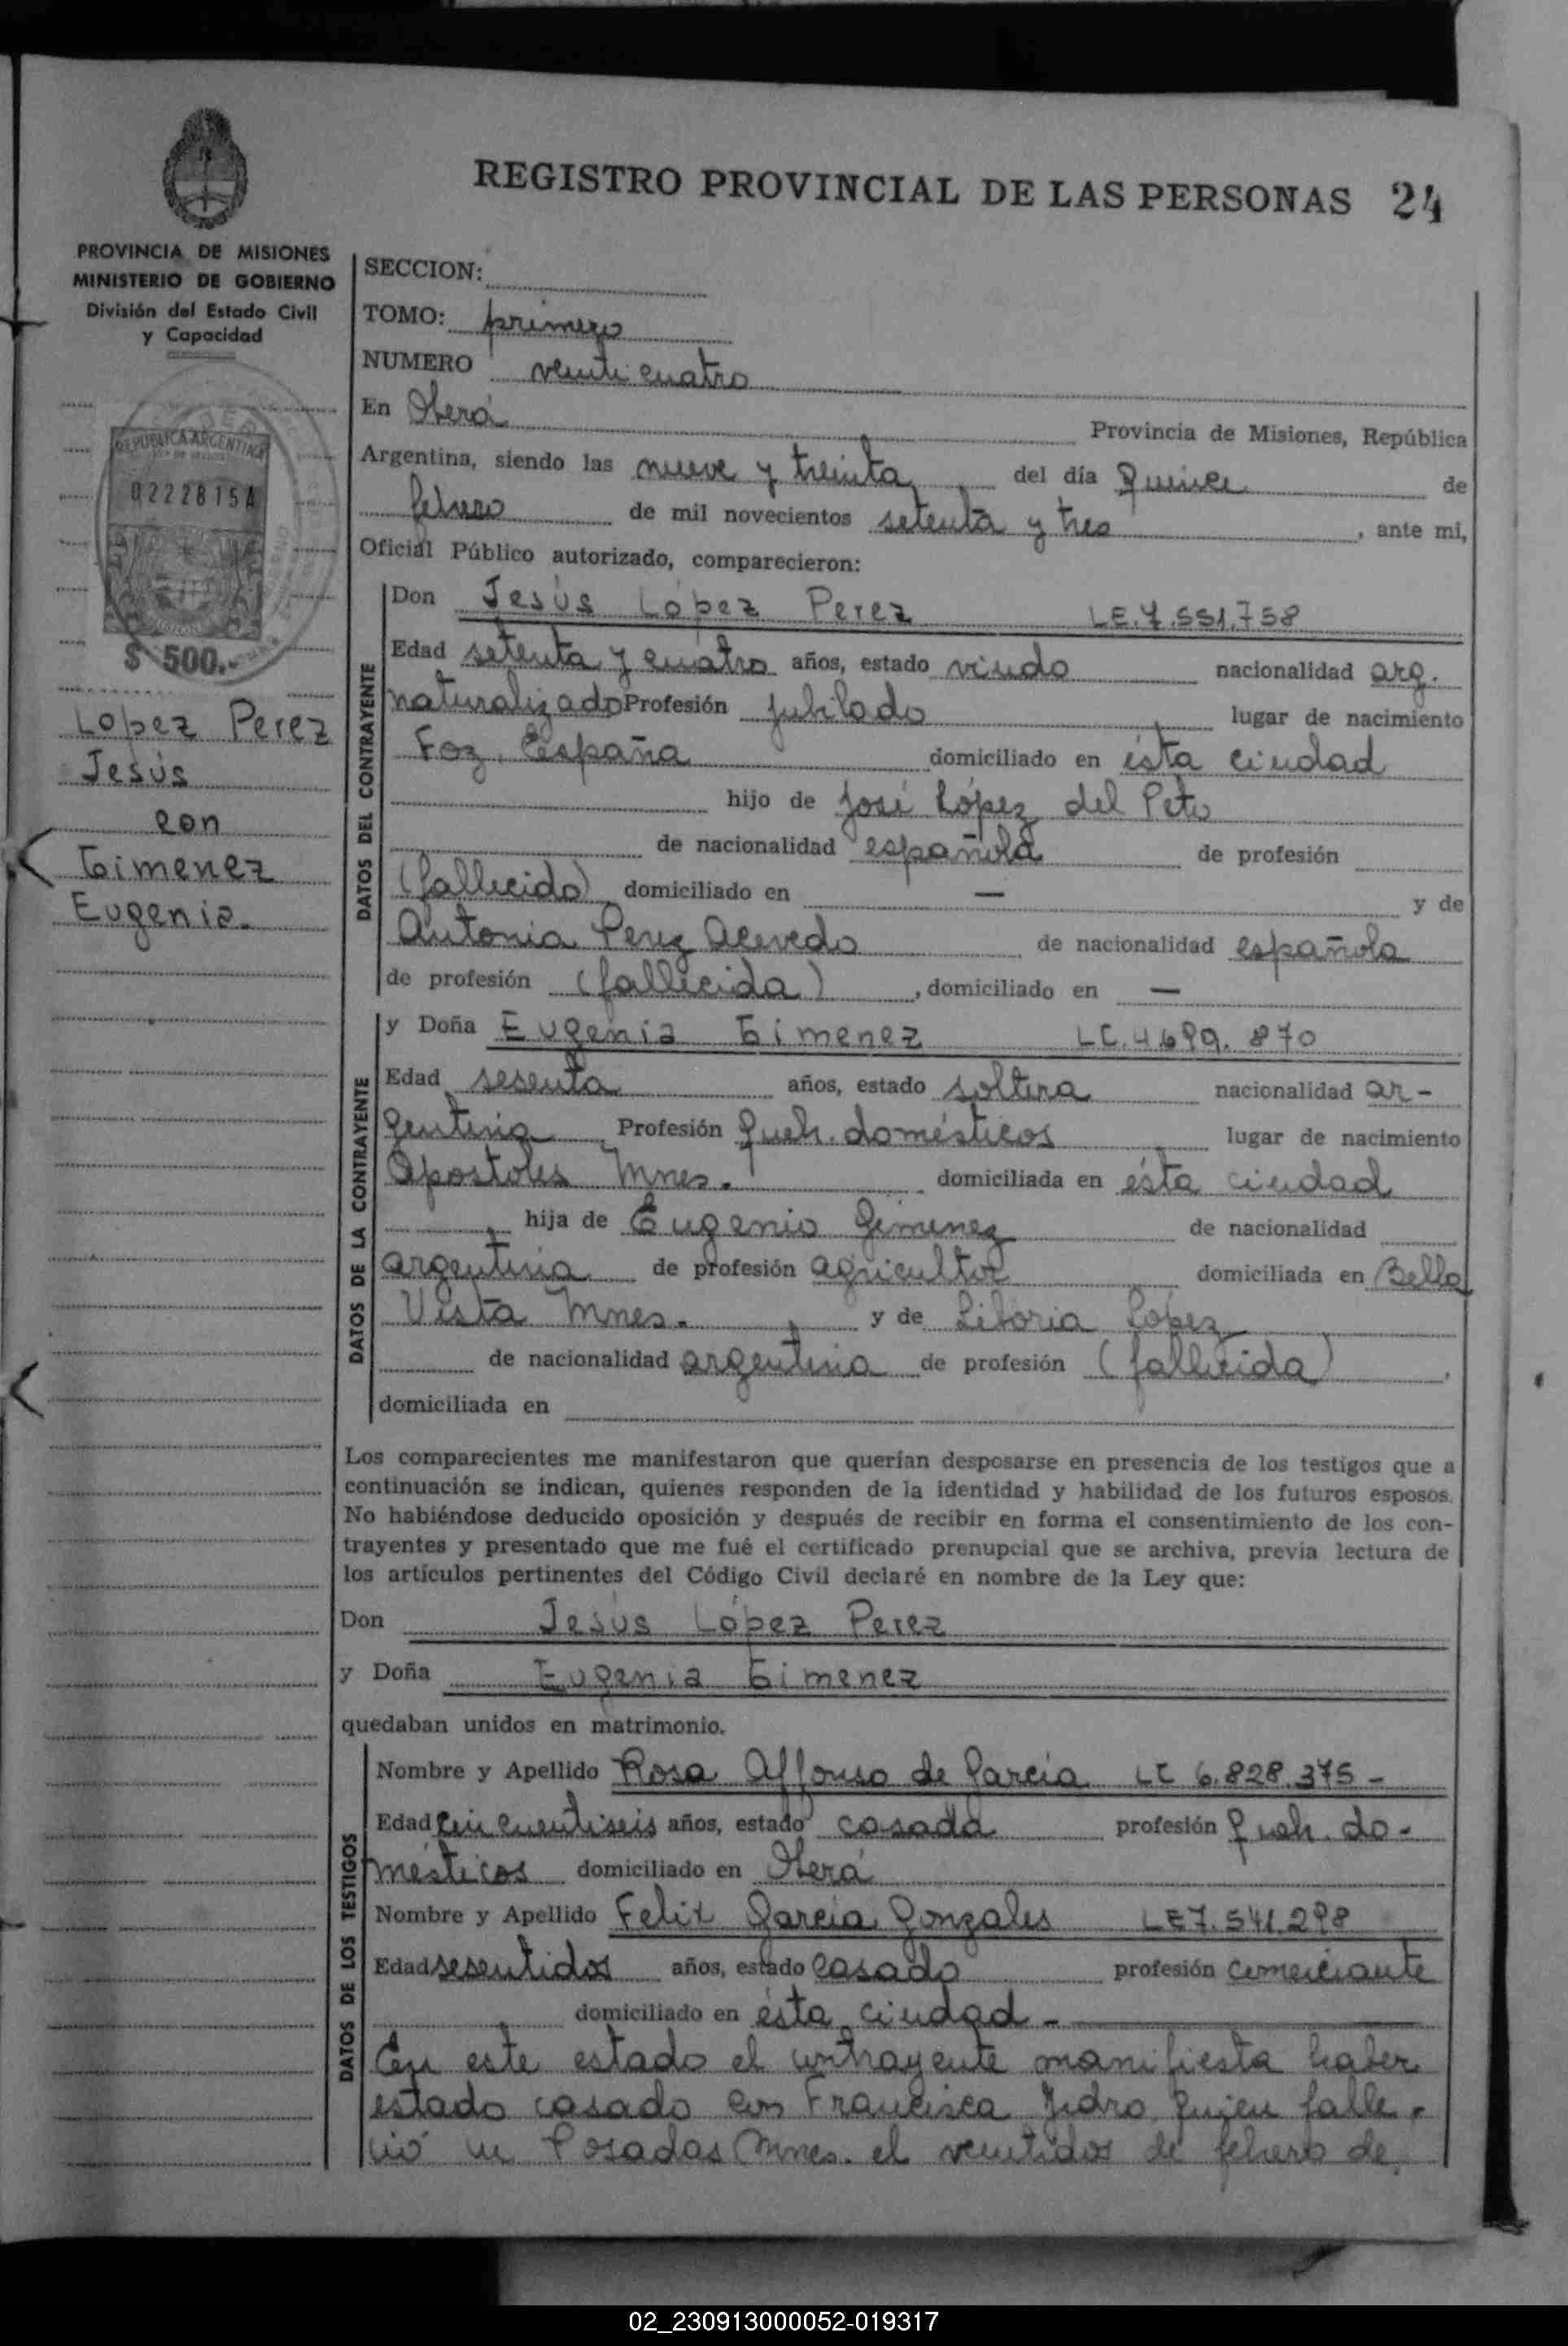 REGISTRO PROVINCIAL DE LAS PERSONAS 24
PROVINCIA DE MISIONES
MINISTERIO DE GOBIERNO
División del Estado Civil
y Capacidad
REPUBLICA ARGENTINA
02228154
$ 500.-
Lopez Perez
Jesús
con
Gimenez
Eugenia.
SECCION:
TOMO: primero
NUMERO venticuatro
En Oberá Provincia de Misiones, República
Argentina, siendo las nueve y treinta del día quince de
febrero de mil novecientos setenta y tres, ante mi,
Oficial Público autorizado, comparecieron:
DATOS DEL CONTRAYENTE
Don Jesús López Perez LE.7.551.758
Edad setenta y cuatro años, estado viudo nacionalidad arg.
naturalizado Profesión jubilado lugar de nacimiento
Foz, España domiciliado en ésta ciudad
hijo de José López del Peto
de nacionalidad española de profesión
(fallecido) domiciliado en — y de
Antonia Perez Acevedo de nacionalidad española
de profesión (fallecida), domiciliado en —
DATOS DE LA CONTRAYENTE
y Doña Eugenia Gimenez LC.4.699.870
Edad sesenta años, estado soltera nacionalidad ar-
gentina Profesión queh. domésticos lugar de nacimiento
Apostoles Mnes. domiciliada en ésta ciudad
hija de Eugenio Gimenez de nacionalidad
argentina de profesión agricultor domiciliada en Bella
Vista Mnes. y de Liboria López
de nacionalidad argentina de profesión (fallecida),
domiciliada en
Los comparecientes me manifestaron que querían desposarse en presencia de los testigos que a
continuación se indican, quienes responden de la identidad y habilidad de los futuros esposos.
No habiéndose deducido oposición y después de recibir en forma el consentimiento de los con-
trayentes y presentado que me fué el certificado prenupcial que se archiva, previa lectura de
los artículos pertinentes del Código Civil declaré en nombre de la Ley que:
Don Jesús López Perez
y Doña Eugenia Gimenez
quedaban unidos en matrimonio.
DATOS DE LOS TESTIGOS
Nombre y Apellido Rosa Affonso de García LC 6.828.375-
Edad cincuentiseis años, estado casada profesión queh. do-
mésticos domiciliado en Oberá
Nombre y Apellido Felix García Gonzales LE7.541.298
Edad sesentidos años, estado casado profesión comerciante
domiciliado en ésta ciudad-
En este estado el contrayente manifiesta haber
estado casado con Francisca quien falle-
ció en Posadas Mnes. el ventidos de febrero de
02_230913000052-019317